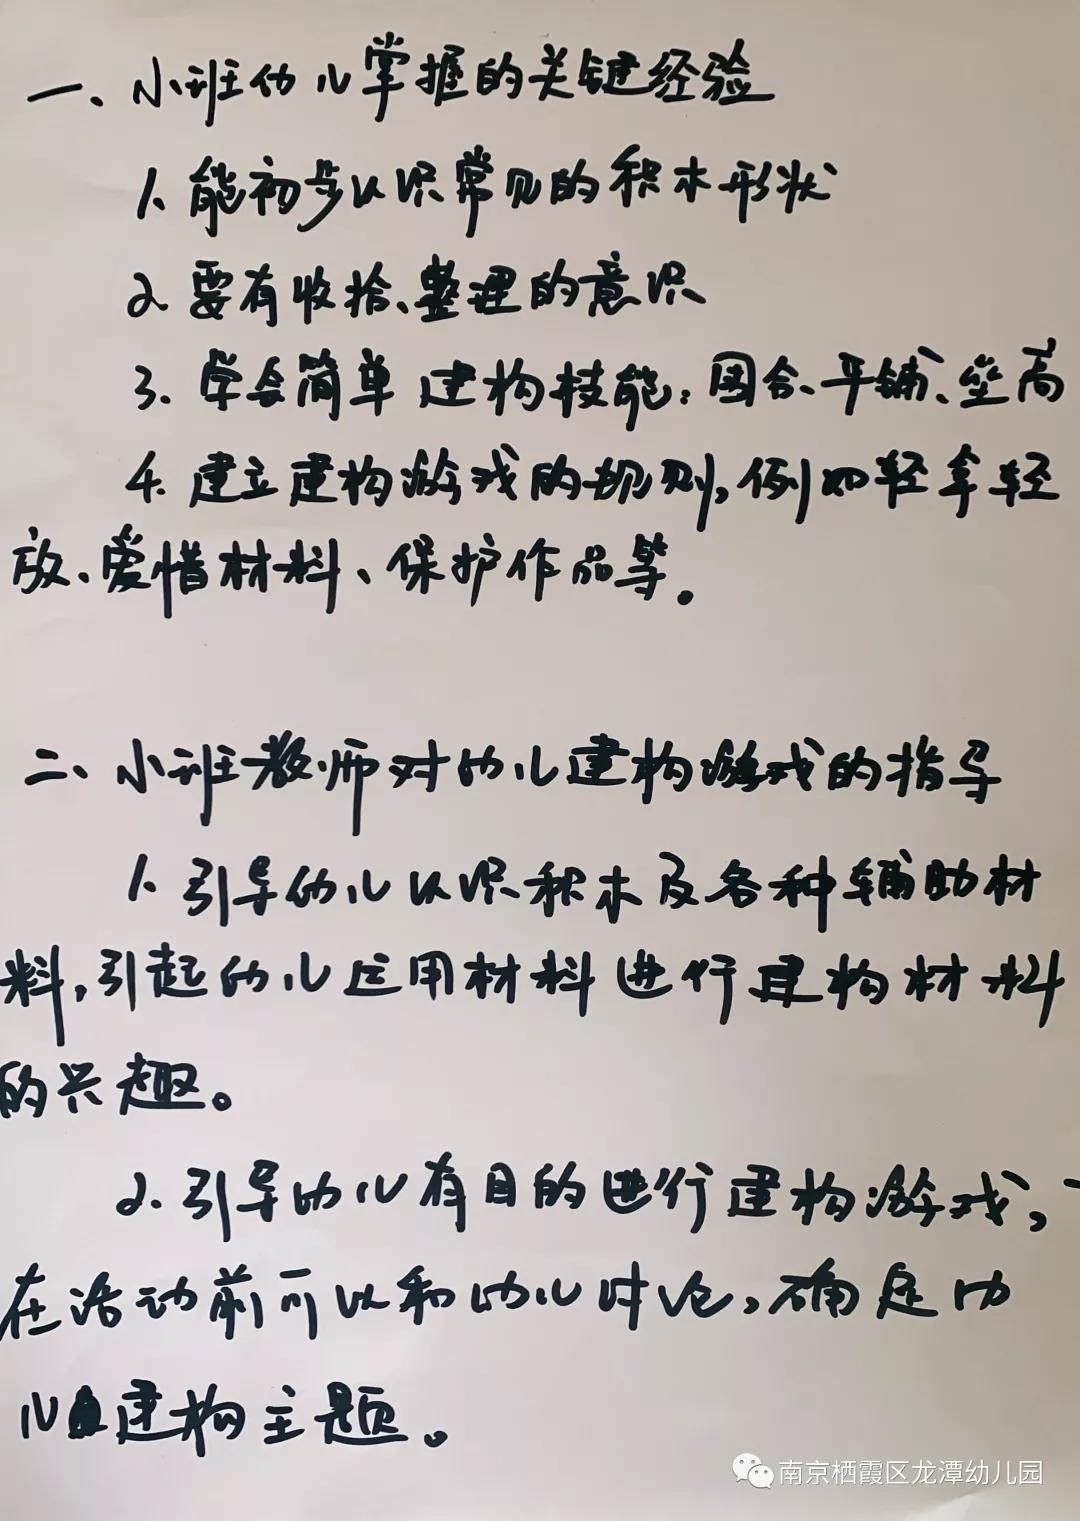 一、小班幼儿掌握的关键经验
1. 能初步认识常见的积木形状
2 要有收拾、整理的意识
3. 学会简单建构技能：围合、平铺、垒高
4. 建立建构游戏的规则，例如轻拿轻
放、爱惜材料、保护作品等。
二、小班教师对幼儿建构游戏的指导
1. 引导幼儿认识积木及各种辅助材
料，引起幼儿运用材料进行建构材料
的兴趣。
2. 引导幼儿有目的进行建构游戏，
在活动前可以和幼儿讨论，确定幼
儿建构主题。
南京栖霞区龙潭幼儿园